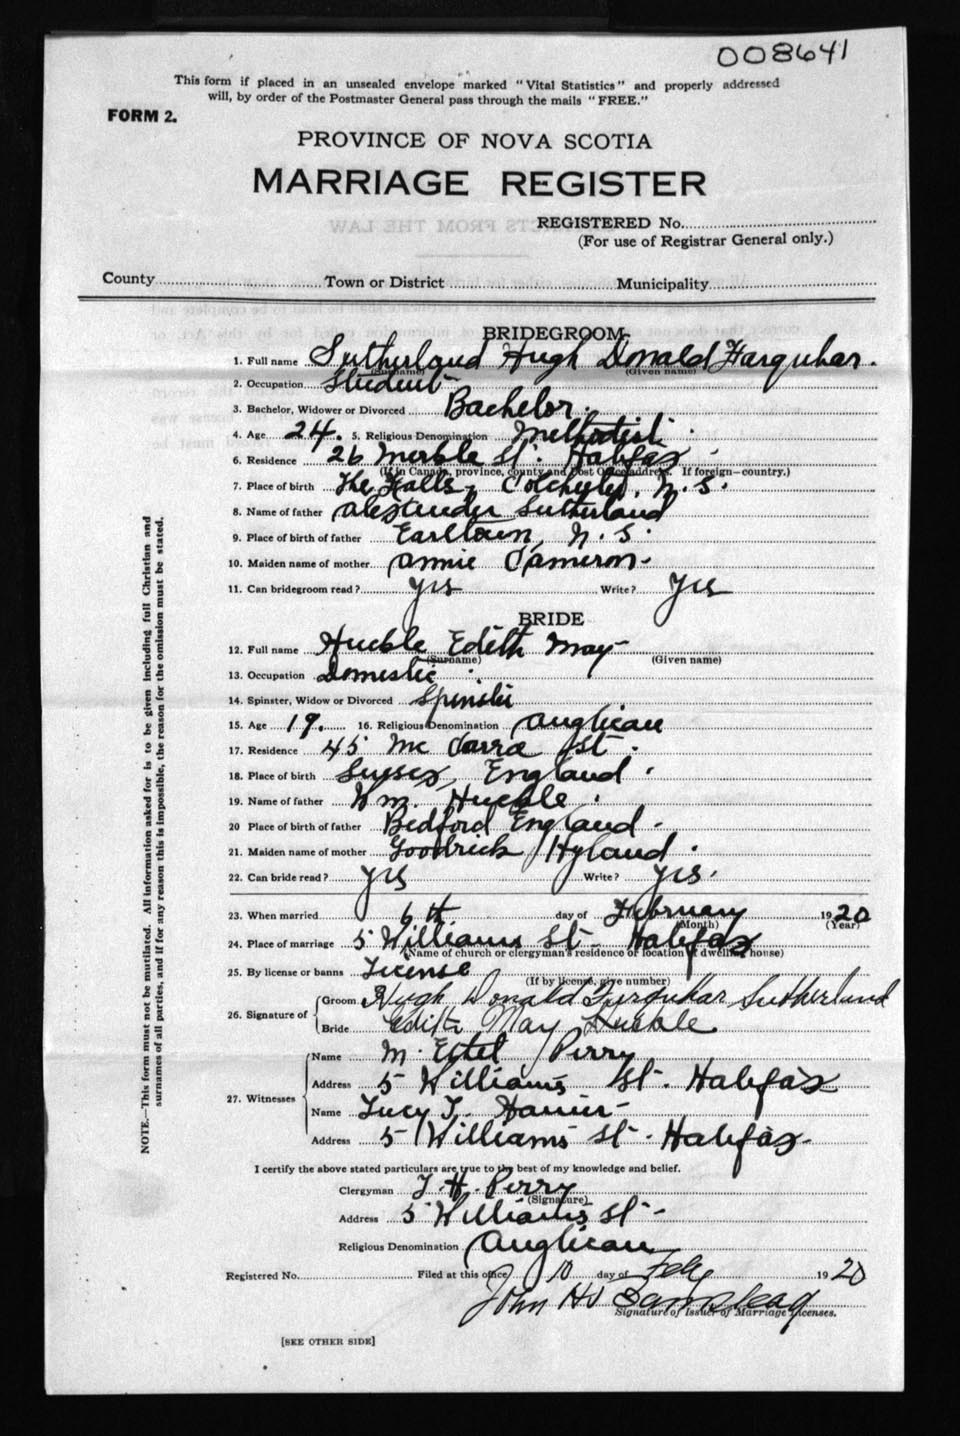 008641
This form if placed in an unsealed envelope marked "Vital Statistics" and properly addressed
will, by order of the Postmaster General pass through the mails "FREE."
FORM 2.
PROVINCE OF NOVA SCOTIA
MARRIAGE REGISTER
REGISTERED No.
(For use of Registrar General only.)
County Town or District Municipality
BRIDEGROOM
1. Full name Sutherland Hugh Donald Farquhar.
(Surname) (Given name)
2. Occupation Student
3. Bachelor, Widower or Divorced Bachelor.
4. Age 24. 5. Religious Denomination Methodist.
6. Residence 26 St. Halifax
(If in Canada, province, county and Post Office address. If foreign—country.)
7. Place of birth The Falls, Colchester, N.S.
8. Name of father Alexander Sutherland
9. Place of birth of father Earltown, N.S.
10. Maiden name of mother Annie Cameron.
11. Can bridegroom read? Yes Write? Yes
BRIDE
12. Full name Huckle Edith May
(Surname) (Given name)
13. Occupation Domestic
14. Spinster, Widow or Divorced Spinster
15. Age 19. 16. Religious Denomination Anglican
17. Residence 45 St.
18. Place of birth Sussex, England.
19. Name of father Wm. Huckle.
20 Place of birth of father Bedford England.
21. Maiden name of mother Goodrick Hyland.
22. Can bride read? Yes Write? Yes.
23. When married 6th day of February 1920
(Month) (Year)
24. Place of marriage 5 Williams St. Halifax
(Name of church or clergyman's residence or location of dwelling house)
25. By license or banns License
(If by license, give number)
26. Signature of Groom Hugh Donald Farquhar Sutherland
Bride Edith May Huckle
27. Witnesses Name M. Perry
Address 5 Williams St. Halifax
Name Lucy
Address 5 Williams St. Halifax.
I certify the above stated particulars are true to the best of my knowledge and belief.
Clergyman Perry
(Signature)
Address 5 Williams St.
Religious Denomination Anglican
Registered No. Filed at this office 10 day of Feby 1920
John
Signature of Issuer of Marriage Licenses.
[SEE OTHER SIDE]
NOTE.—This form must not be mutilated. All information asked for is to be given including full Christian and
surnames of all parties, and if for any reason this is impossible, the reason for the omission must be stated.